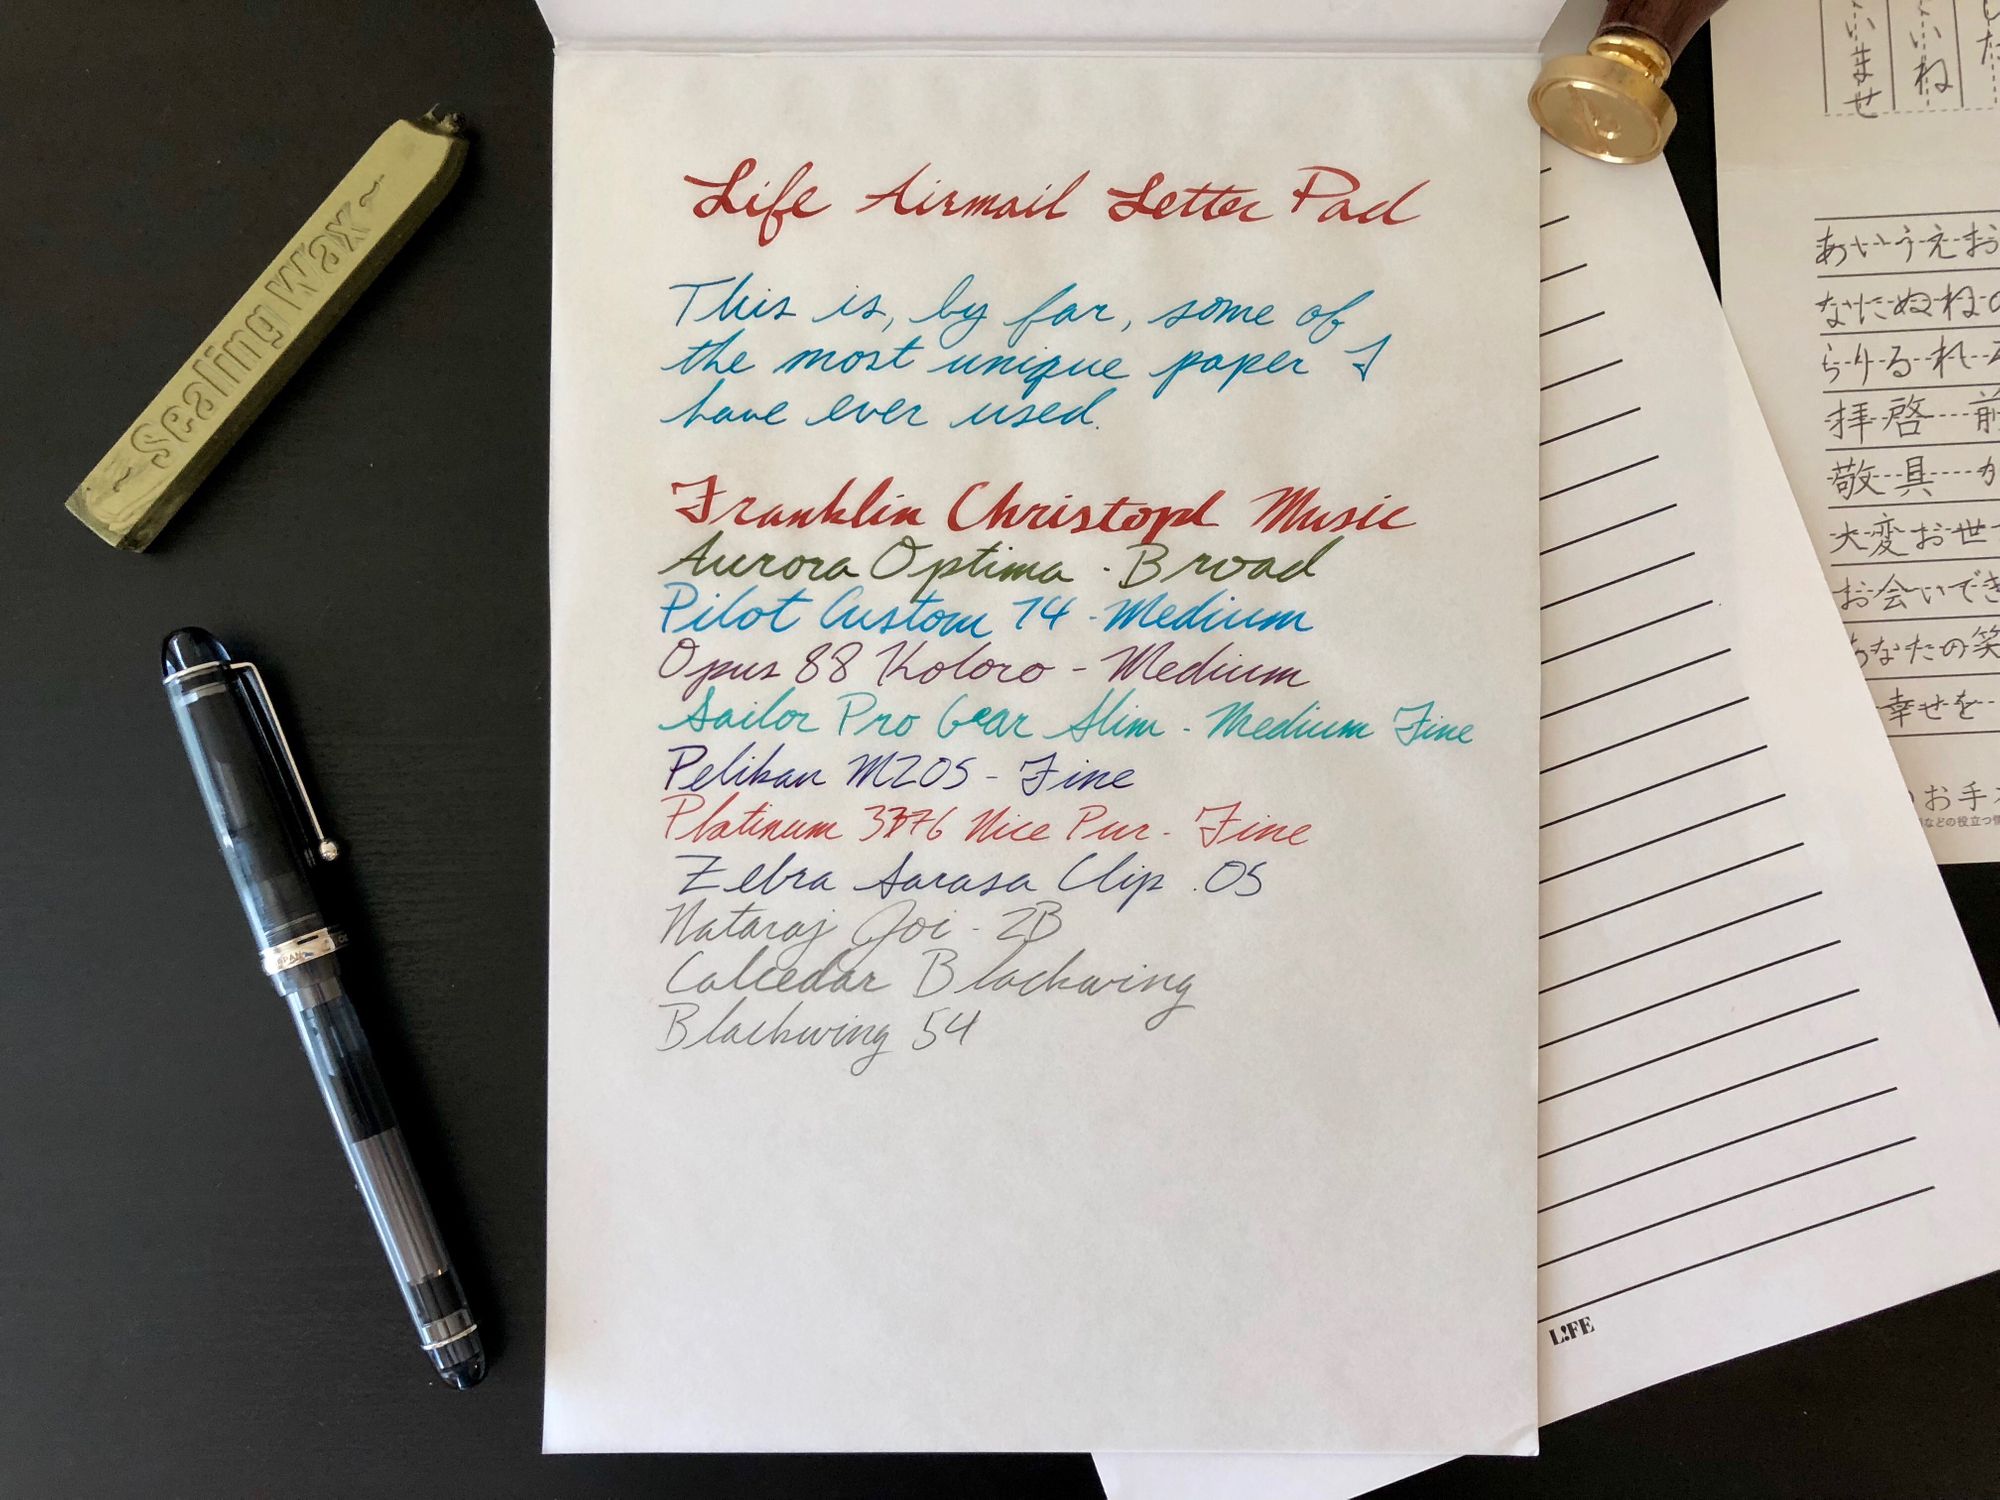 Life Airmail Letter Pad
This is, by far, some of
the most unique paper I
have ever used.
Franklin Christoph Music
Aurora Optima - Broad
Pilot Custom 74 - Medium
Opus 88 Koloro - Medium
Sailor Pro Gear Slim - Medium Fine
Pelikan M205 - Fine
Platinum 3776 Nice Pur - Fine
Zebra Sarasa Clip .05
Nataraj Joi - 2B
Calcedar Blackwing
Blackwing 54
~ Sealing Wax ~
L!FE
いませ
いね
た
あいうえお
なにぬね
らりるれ
拝啓 前
敬具 か
大変お世
お会いでき
あなたの笑
幸せを
お手
などの役立つ